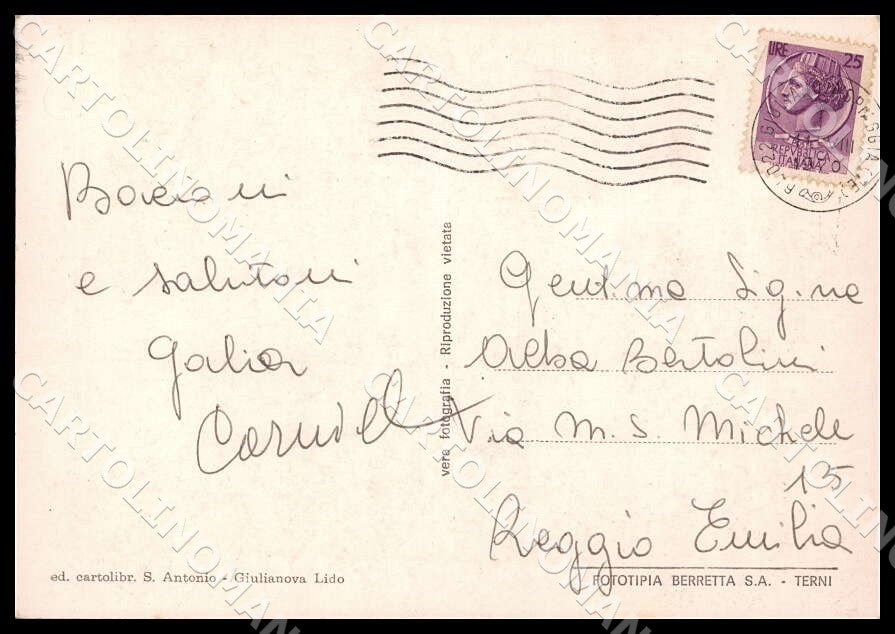 LIRE 25
REPUBBLICA
ITALIANA
Bacioni
e salutoni
Galia
vera fotografia - Riproduzione vietata
Gent.ma Sig.na
Alba Bertolini
Via M. S. Michele
15
Reggio Emilia
ed. cartolibr. S. Antonio - Giulianova Lido
FOTOTIPIA BERRETTA S.A. - TERNI
CARTOLINOMANIA